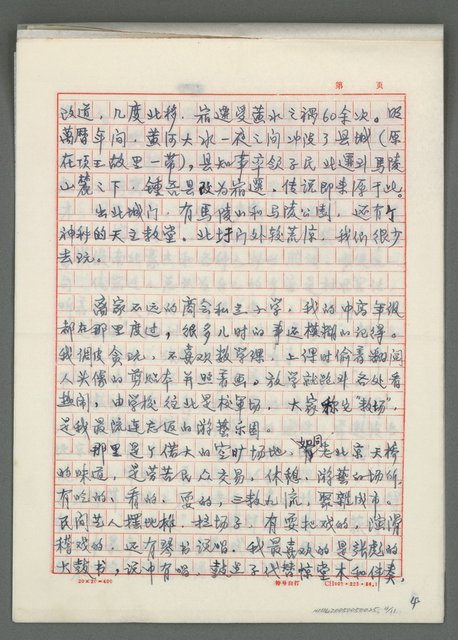 第 页
改道,几度北移,宿迁受黄水之祸60余次。明
万历年间,黄河大水一夜之间冲没了县城(原
在项王故里一带),县知事率领子民北迁到马陵
山麓之下,钟吾县改为宿迁,传说即来源于此。
出北城门,有马陵山和马陵公园,还有个
神秘的天主教堂。北圩门外较荒凉,我们很少
去玩。
离家不远的商会和 小学,我的中高年级
都在那里度过,很多儿时的事还模糊的记得。
我调皮贪玩,不喜欢数学课,上课时偷看
人头像的 本 画。放学就跑外各处看
热闹,由学校往北是校军场,大家称它“教场”,
是我最流连忘返的游艺乐园。
那里是个偌大的空旷场地,如同 北京天桥
的味道,是劳苦民众交易、休憩、游艺的场所,
有吃的、看的、耍的,三教九流,聚杂成市。
民间艺人摆地摊,拉场子,有耍把戏的,演滑
稽戏的,还有琴书说唱,我最喜欢的是张彪的
大鼓书,说中有唱,鼓 子代替惊堂木和伴奏,
20×20=400
4